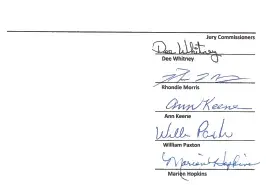 Jury Commissioners
Dee Whitney
Dee Whitney
Rhondie Morris
Ann Keene
Ann Keene
William Paxton
Marion Hopkins
Marion Hopkins